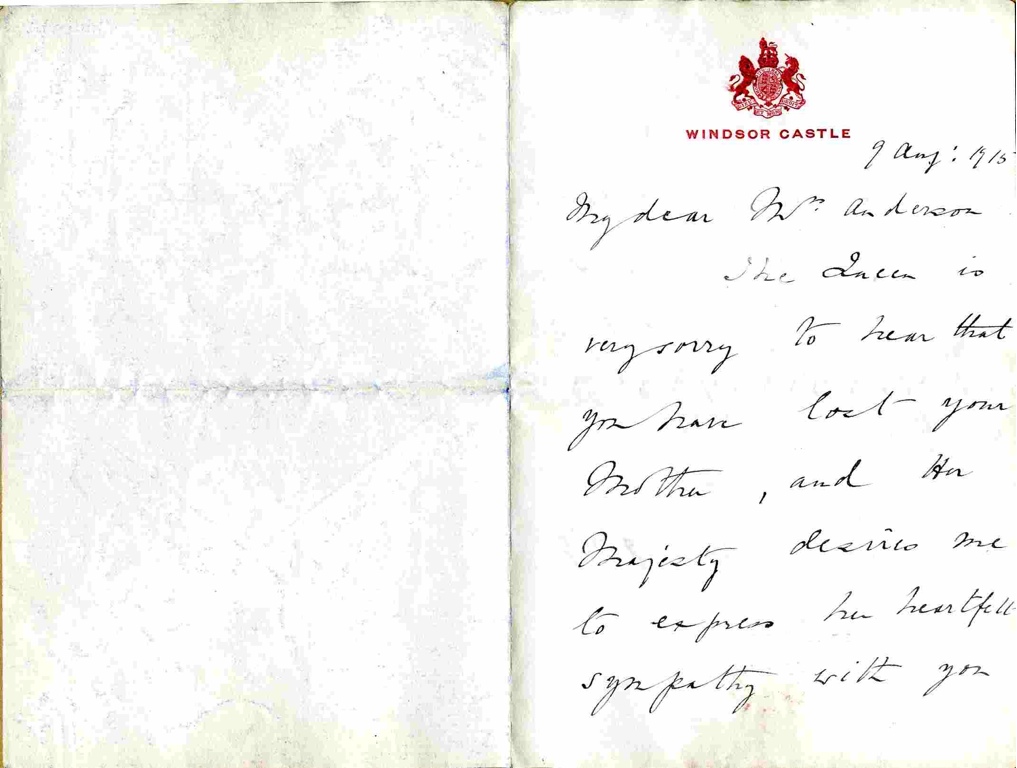 WINDSOR CASTLE
9 Aug: 1915
My dear Mrs. Anderson
The Queen is
very sorry to hear that
you have lost your
Mother, and Her
Majesty desires me
to express her heartfelt
sympathy with you